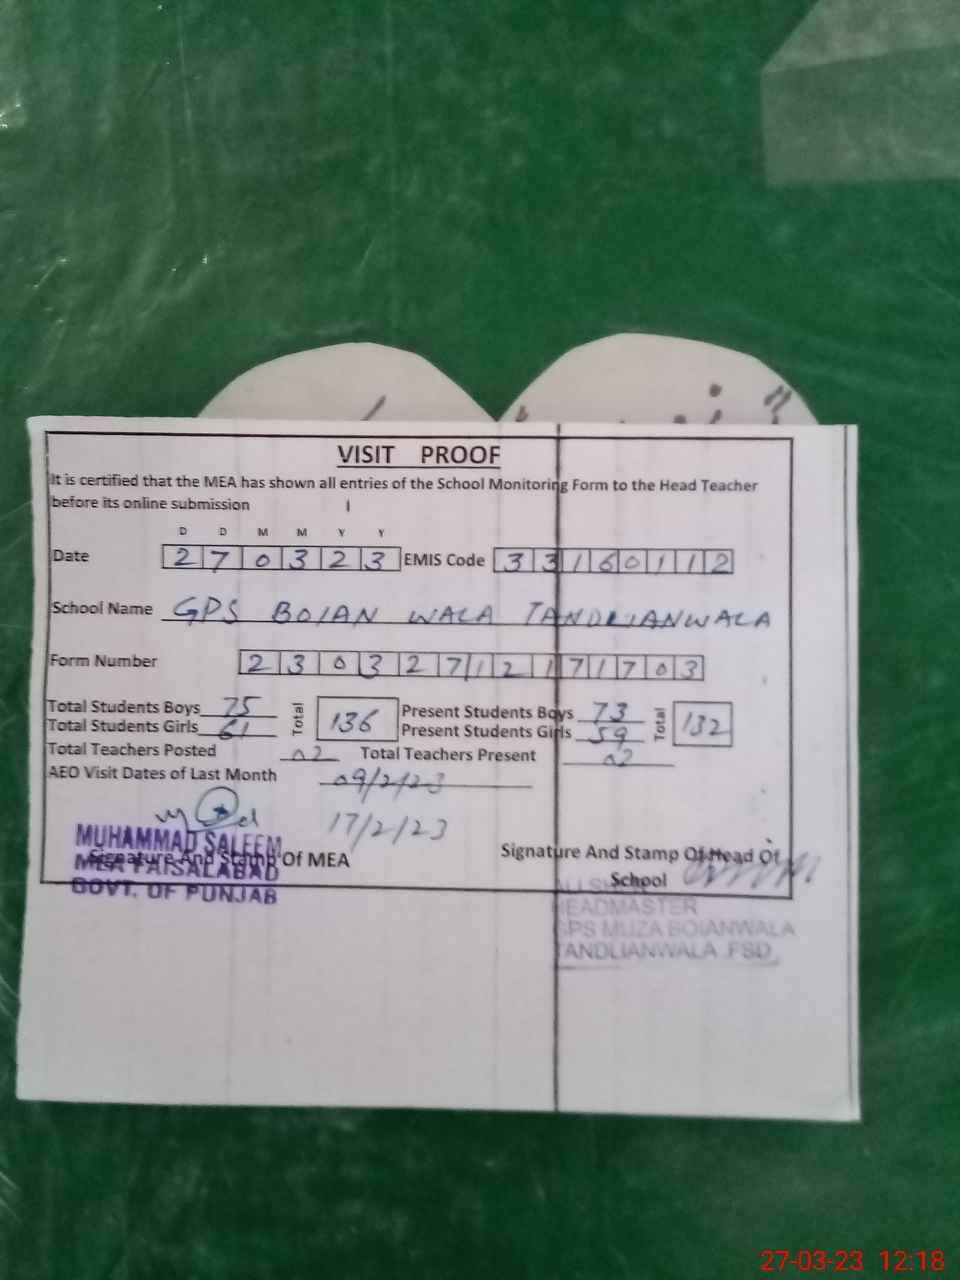 VISIT PROOF
It is certified that the MEA has shown all entries of the School Monitoring Form to the Head Teacher
before its online submission
D D M M Y Y
Date 2 7 0 3 2 3 EMIS Code 3 3 1 6 0 1 1 2
School Name GPS BOIAN WALA TANDLIANWALA
Form Number 2 3 0 3 2 7 1 2 1 7 1 7 0 3
Total Students Boys 75 Total 136 Present Students Boys 73 Total 132
Total Students Girls 61 Present Students Girls 59
Total Teachers Posted 02 Total Teachers Present 02
AEO Visit Dates of Last Month 09/2/23
17/2/23
MUHAMMAD SALEEM
Signature And Stamp Of MEA
MEA FAISALABAD
GOVT. OF PUNJAB
Signature And Stamp Of Head Of
School
HEADMASTER
GPS MUZA BOIANWALA
TANDLIANWALA FSD
27-03-23 12:18